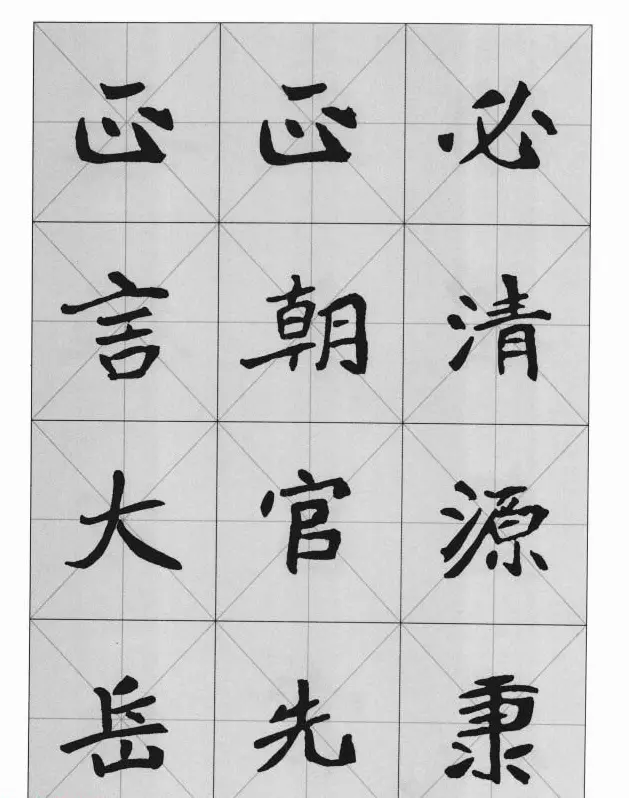 必清源秉
正朝官先
正言大岳